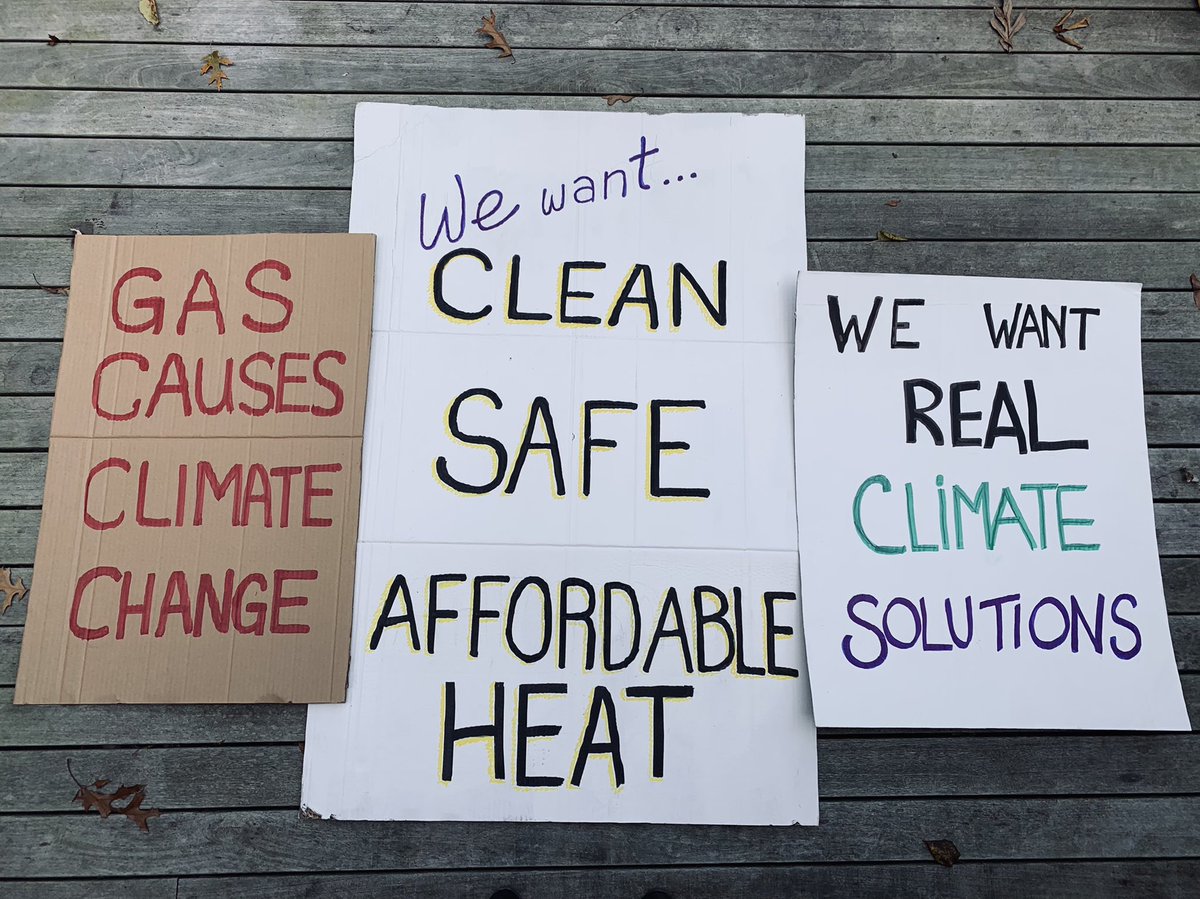 GAS
CAUSES
CLIMATE
CHANGE
We want...
CLEAN
SAFE
AFFORDABLE
HEAT
WE WANT
REAL
CLIMATE
SOLUTIONS